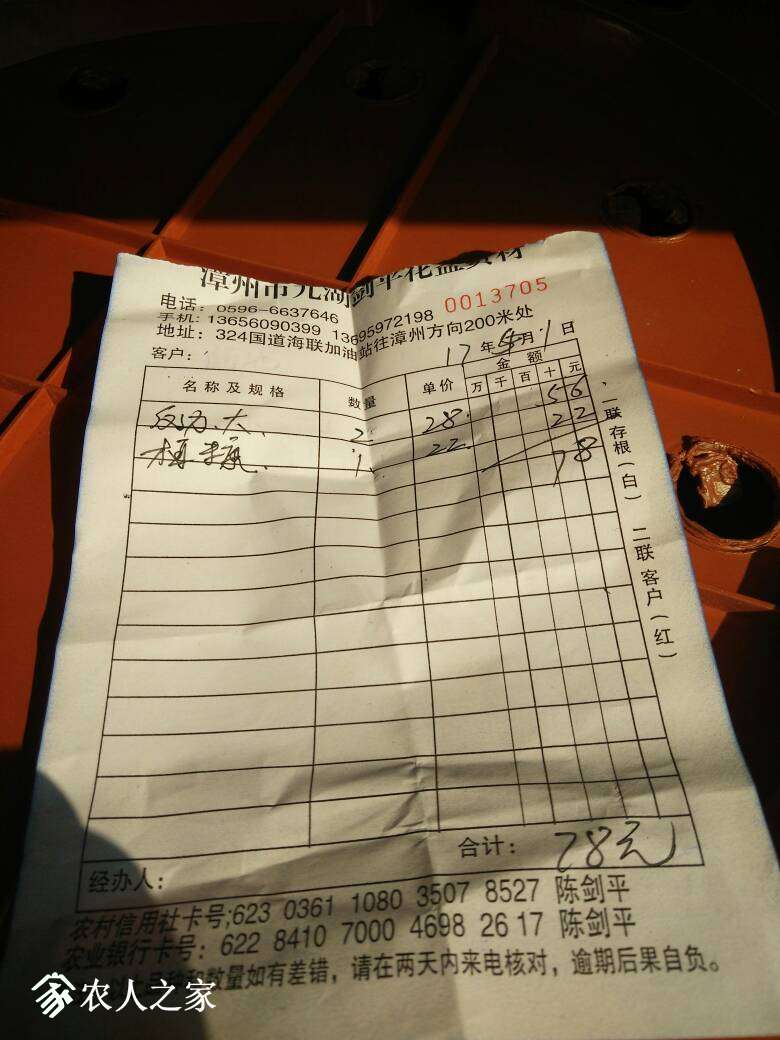 漳州市九湖剑平花盆资材
电话: 0596-6637646 0013705
手机: 13656090399 13695972198
地址: 324国道海联加油站往漳州方向200米处
客户: 17年5月1日
名称及规格 数量 单价 金额
万 千 百 十 元
大 2 28 56
1 22 22
78
一联存根(白) 二联客户(红)
合计: 78元
经办人:
农村信用社卡号;623 0361 1080 3507 8527 陈剑平
农业银行卡号: 622 8410 7000 4698 26 17 陈剑平
品种和数量如有差错，请在两天内来电核对，逾期后果自负。
农人之家